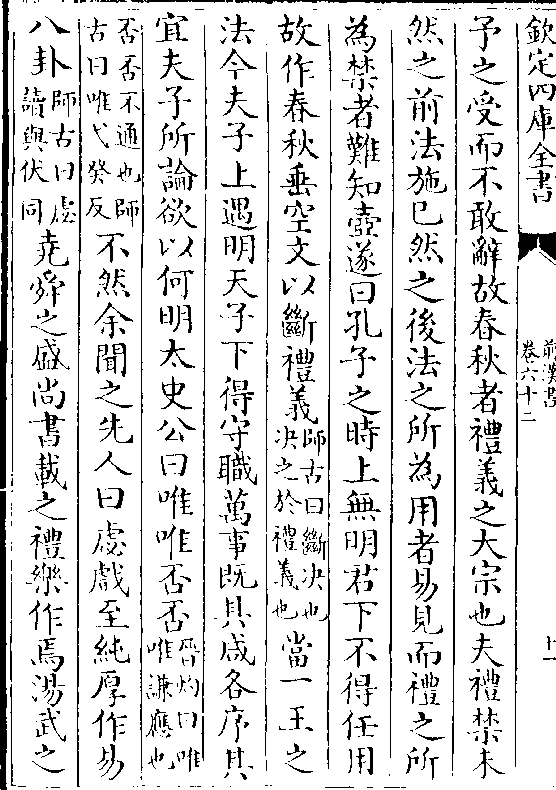 欽定四庫全書
前漢書
卷六十二
十一
予之受而不敢辭故春秋者禮義之大宗也夫禮禁未
然之前法施已然之後法之所為用者易見而禮之所
為禁者難知壺遂曰孔子之時上無明君下不得任用
故作春秋垂空文以斷禮義師古曰斷決也決之於禮義也當一王之
法今夫子上遇明天子下得守職萬事既具咸各序其
宜夫子所論欲以何明太史公曰唯唯否否晉灼曰唯唯謙應也
否否不通也師古曰唯弋癸反不然余聞之先人曰虙戲至純厚作易
八卦師古曰虙讀與伏同堯舜之盛尚書載之禮樂作焉湯武之